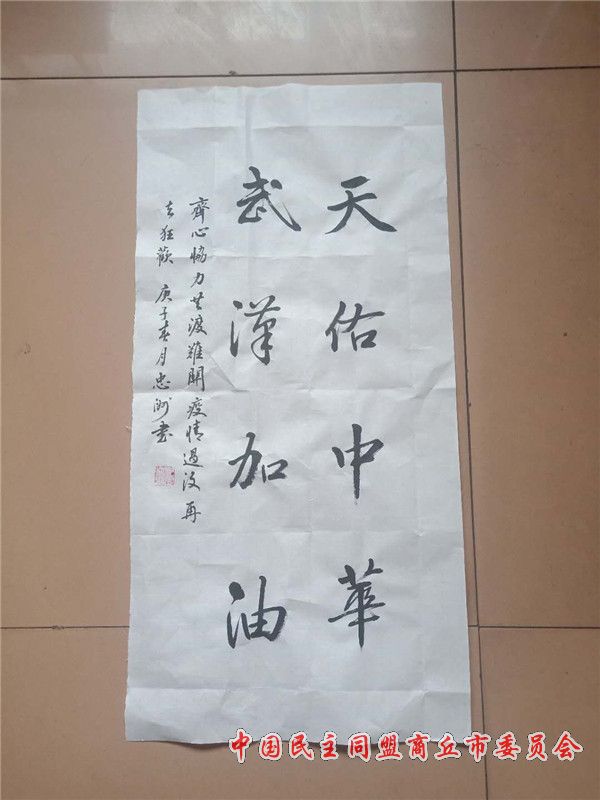 天佑中華
武漢加油
齊心協力共渡難關疫情過後再
去狂歡 庚子春月忠洲書
中国民主同盟商丘市委员会